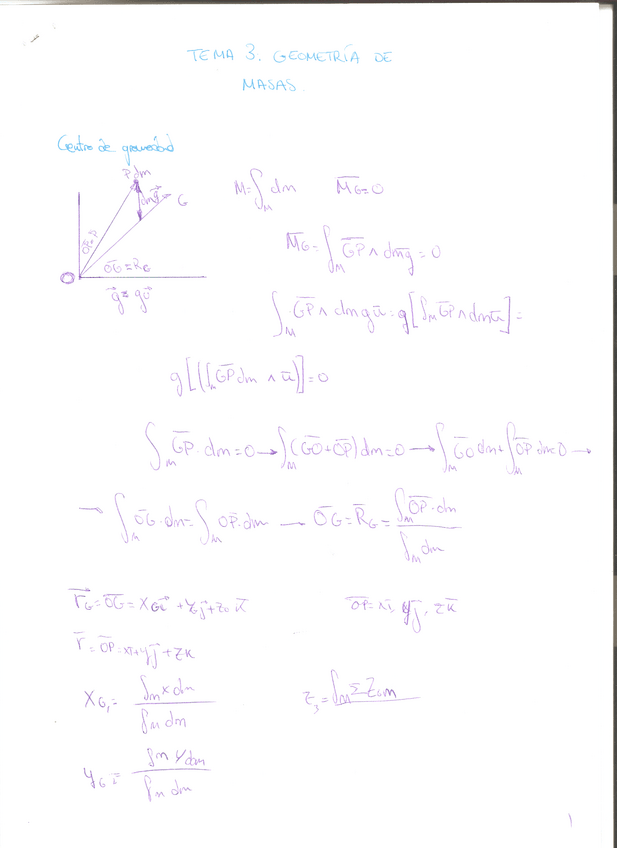 TEMA 3. GEOMETRÍA DE
MASAS.
Centro de gravedad
P dm
dm g⃗
G
OP = r
O
OG = R_G
g⃗ = g u⃗
M = ∫_M dm    M_G = 0
M_G = ∫_M GP ∧ dm g = 0
∫_M GP ∧ dm g u = g [∫_M GP ∧ dm u] =
g [(∫_M GP dm ∧ u)] = 0
∫_M GP · dm = 0 → ∫_M (GO + OP) dm = 0 → ∫_M GO dm + ∫_M OP dm = 0 →
→ ∫_M OG · dm = ∫_M OP · dm → OG = R_G = ∫_M OP · dm / ∫_M dm
r_G = OG = x_G i + y_G j + z_G k    OP = xi, yj, zk
r = OP = xi + yj + zk
X_G = ∫_M x dm / ∫_M dm
y_G = ∫_M y dm / ∫_M dm
1